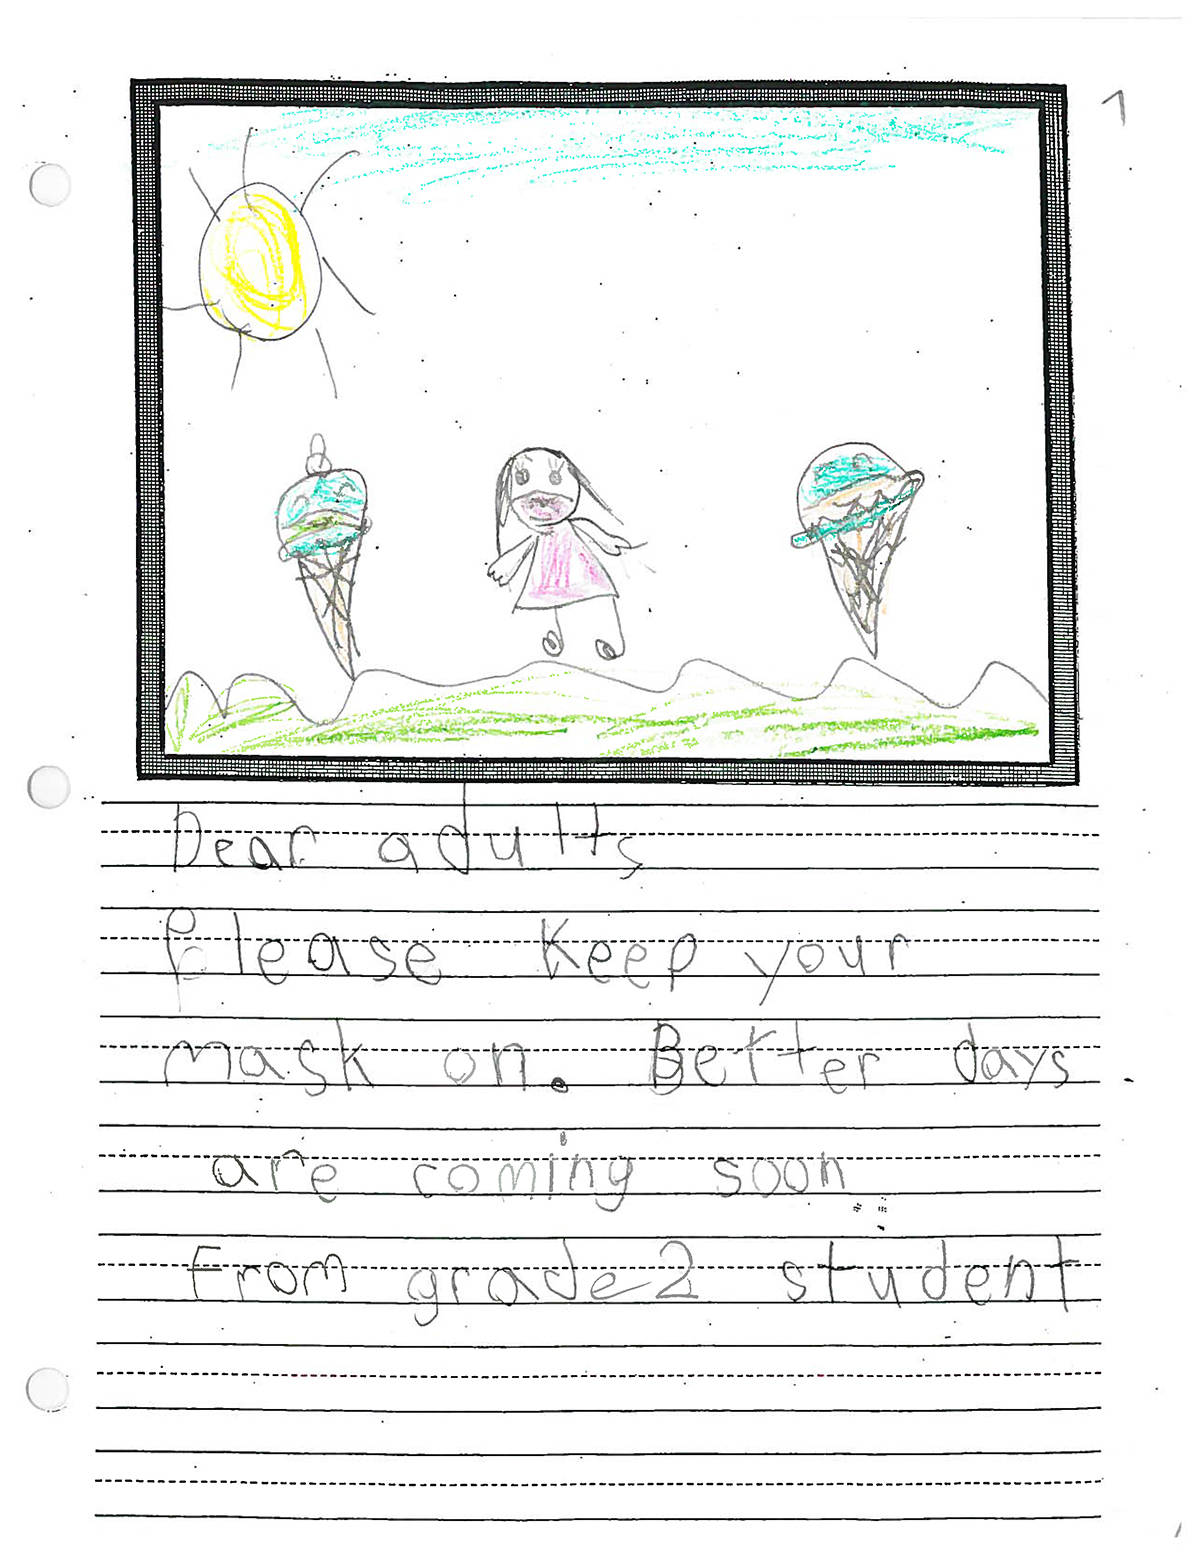 1
Dear adults
Please Keep your
mask on. Better days
are coming soon
From grade 2 student